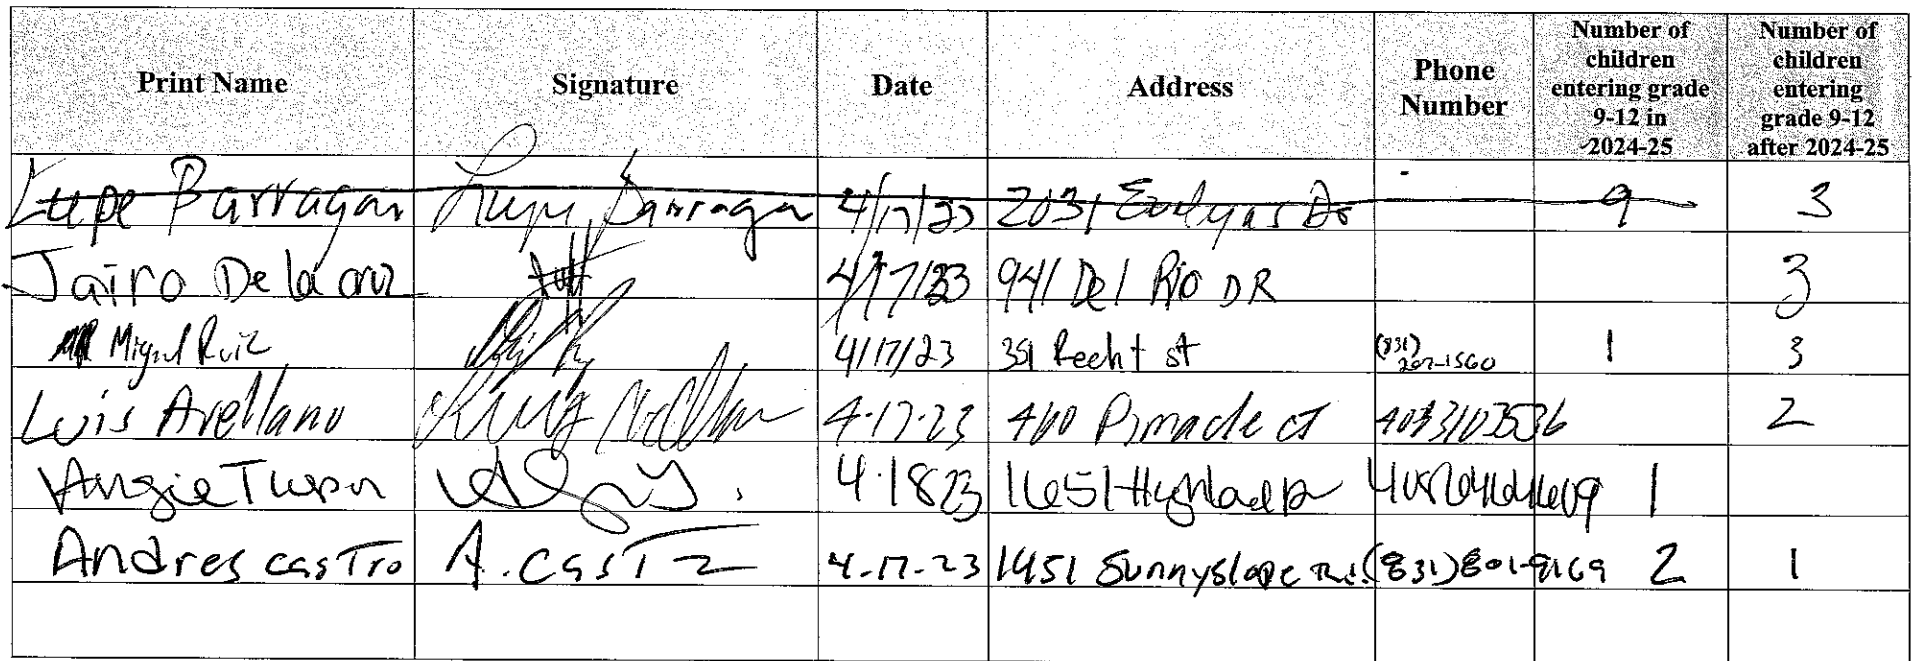 Print Name Signature Date Address Phone Number Number of children entering grade 9-12 in 2024-25 Number of children entering grade 9-12 after 2024-25
Lupe Barragan Lupe Barragan 4/17/23 2031 Dr 9 3
Jairo Dela cruz 4/17/23 941 Del Rio DR 3
Miguel Ruiz 4/17/23 351 Recht st (831) 1 3
Luis Avellano 4-17-23 Pinnacle ct 2
Angie 4.18 23 1651 1
Andres casTro A. casT 4-17-23 1451 Sunnyslope Rd. (831) 2 1